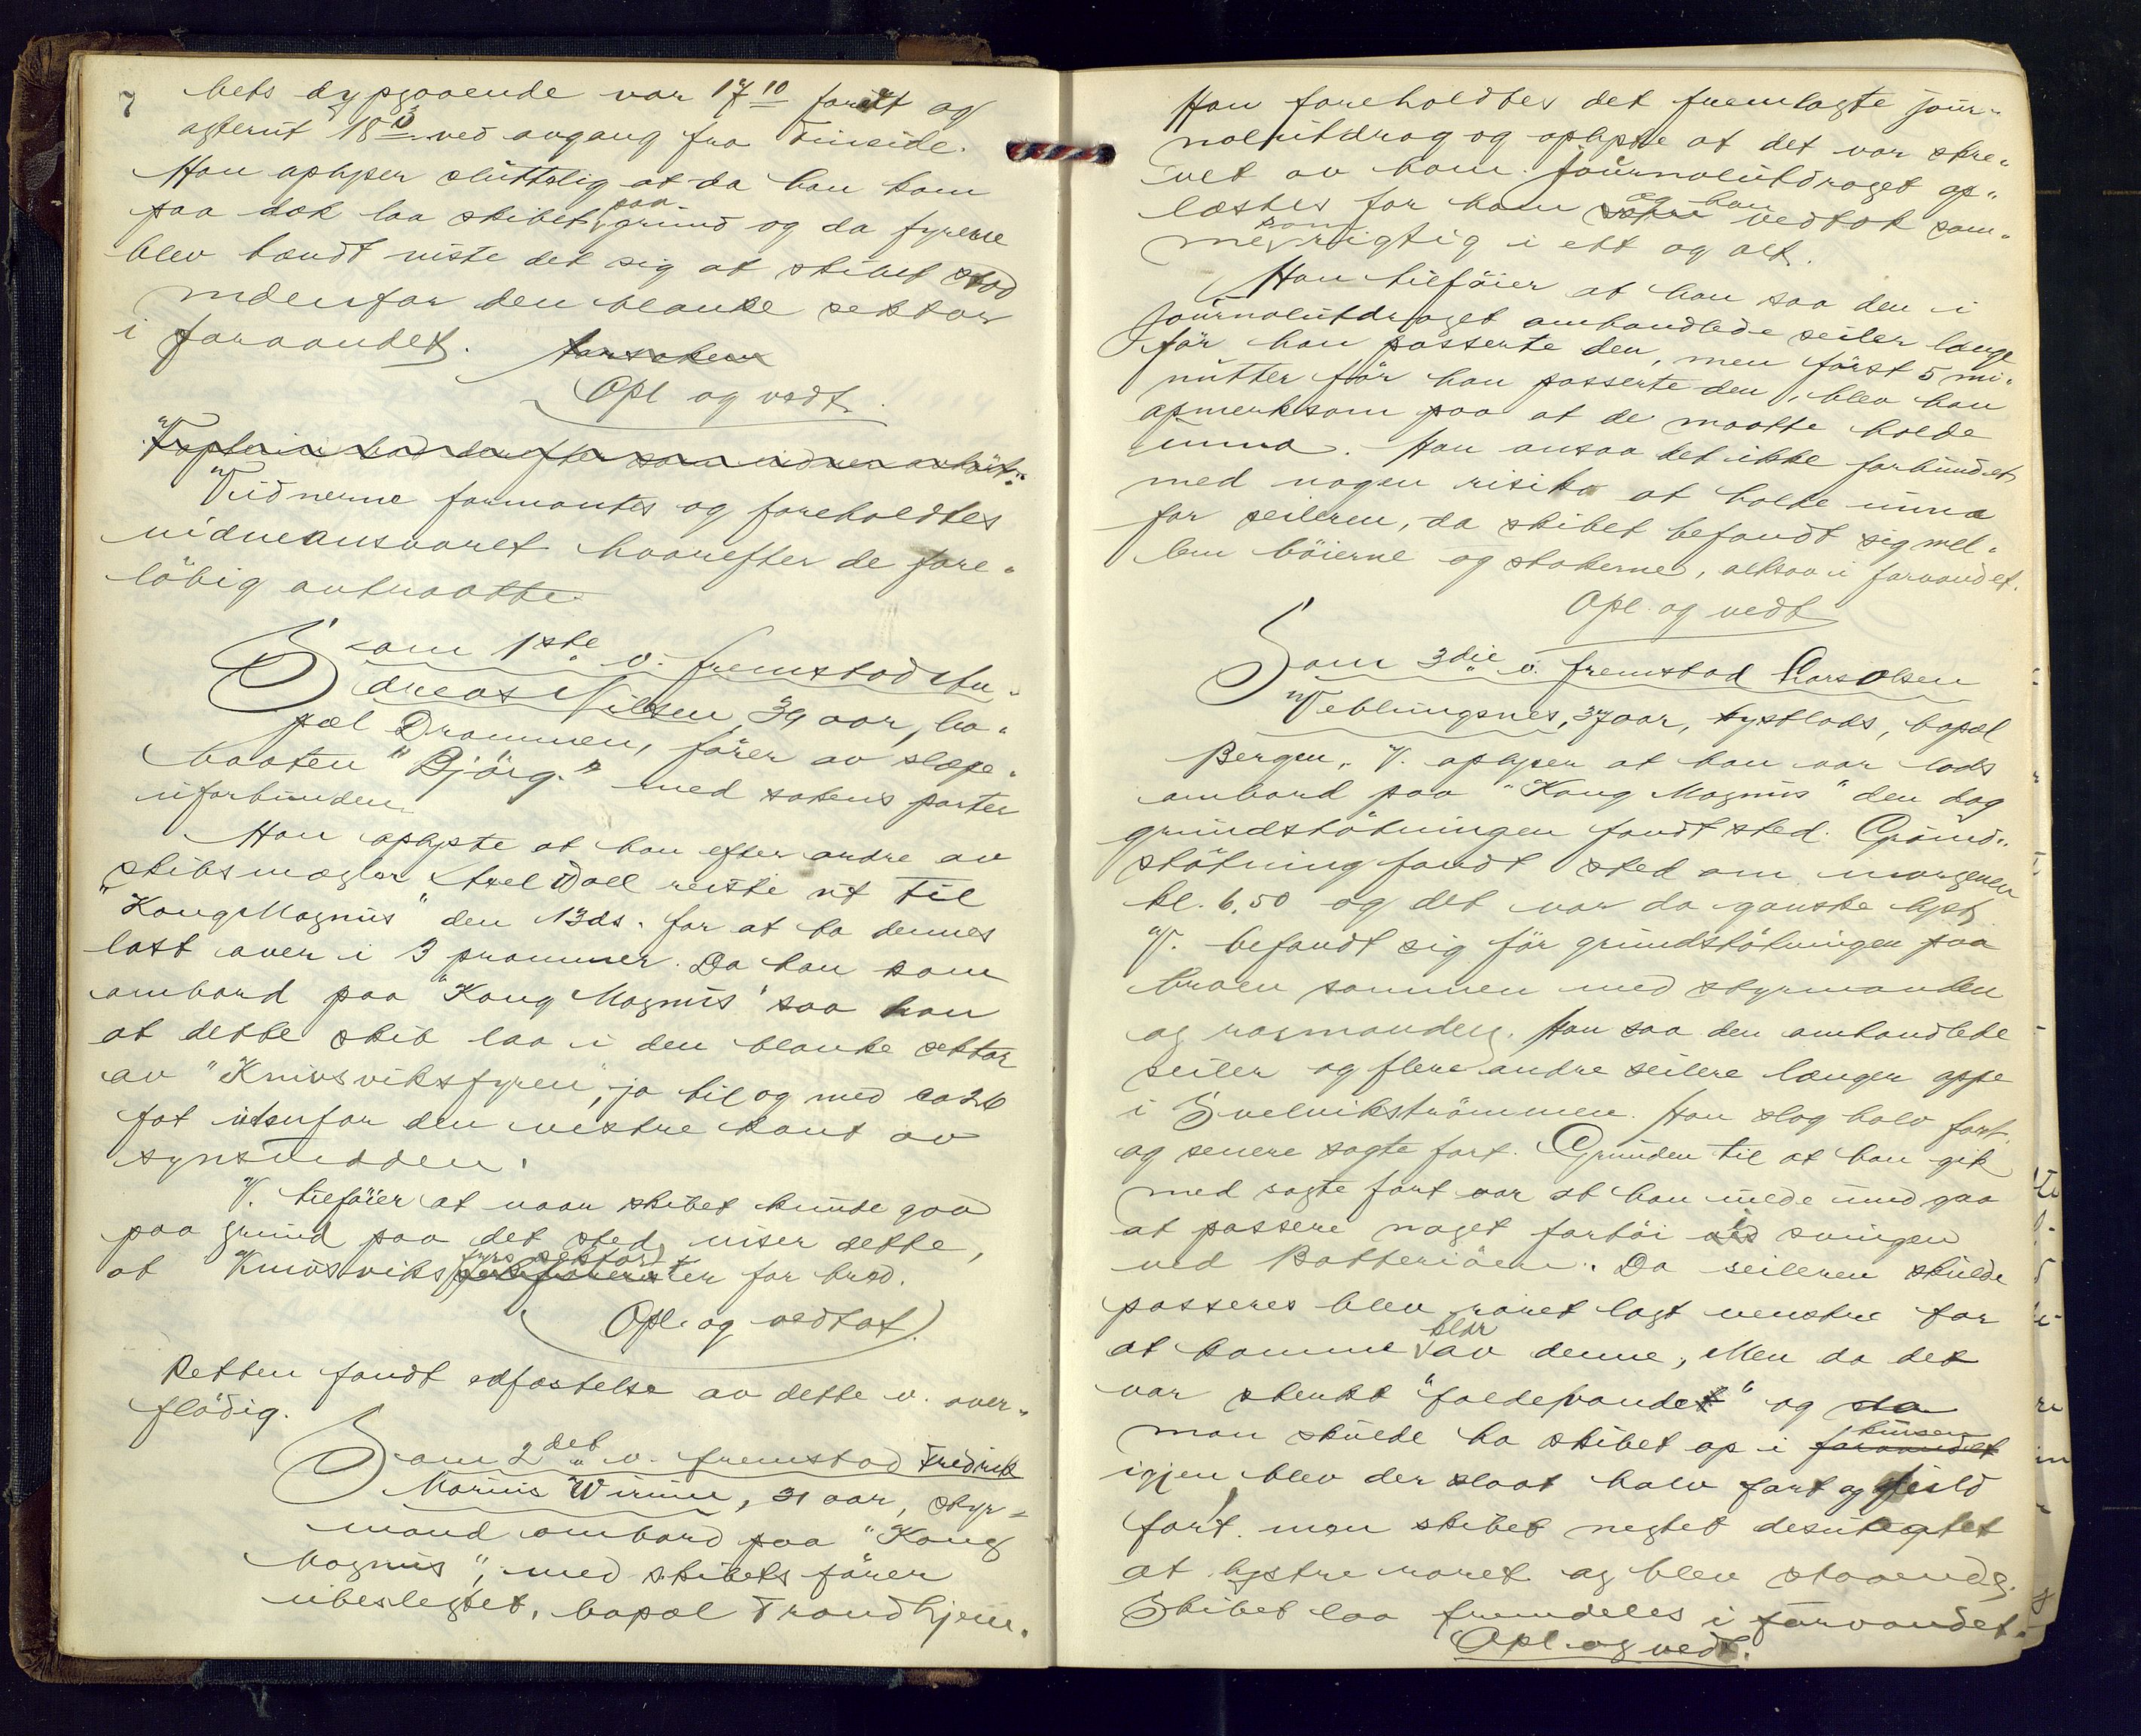 7
bets dypgaaende var 17 10 forut og
agterut 18 3 ved avgang fra Tineide.
Han oplyser sluttelig at da han kom
paa dæk laa skibet paa grund og da fyrene
blev tændt viste det sig at skibet stod
indenfor den blanke sektor
i farvandet.
Opl og vedt.
Vidnerne formantes og foreholdtes
vidneansvaret hvorefter de fore-
löbig antraatte.
Som 1ste v. fremstod An-
dreas Nilsen, 34 aar, bo-
pæl Drammen, förer av slæpe-
baaten "Björg." med sakens parter
uforbunden.
Han oplyste at han efter ordre av
skibsmægler Axel Wall reiste ut til
"Kong Magnus" den 13ds. for at ta dennes
last over i 3 prammer. Da han kom
ombord paa "Kong Magnus" saa han
at dette skib laa i den blanke sektor
av "Knivsviksfyren", ja til og med ca 26
fot utenfor den vestre kant av
synsvidden.
V. tilföier at naar skibet kunde gaa
paa grund paa det sted, viser dette,
at Knivsviks fyrs sektor er for bred.
Opl. og vedtat.
Retten fandt edfæstelse av dette v. over-
flödig.
Som 2det v. fremstod Fredrik
Marius Wirum, 31 aar, styr-
mand ombord paa "Kong
Magnus", med skibets förer
ubeslegtet, bopæl Trondhjem.
Han foreholdtes det fremlagte jour-
naluitdrag og oplyste at det var skre-
vet av ham. Journalutdraget op-
læstes for ham og han vedtok sam-
me som rigtig i ett og alt.
Han tilföier at han saa den i
journalutdraget omhandlede seiler længe
för han passerte den, men först 5 mi-
nutter för han passerte den, blev han
opmerksom paa at de maatte holde
unna. Han ansaa det ikke forbundet
med nogen risiko at holde unna
for seileren, da skibet befandt sig mel-
lem böierne og stakerne, altsaa i farvandet.
Opl. og vedt
Som 3die v. fremstod Lars Olsen
Veblungsnes, 37 aar, kystlods, bopæl
Bergen. V. oplyser at han var lods
ombord paa "Kong Magnus" den dag
grundstötningen fandt sted. Grund-
stötning fandt sted om morgenen
kl. 6,50 og det var da ganske lyst.
V. befandt sig för grundstötningen paa
broen sammen med styrmanden
og rormanden. Han saa den omhandlede
seiler og flere andre seilere længer oppe
i Svelvikströmmen. Han slog halv fart
og senere sagte fart. Grunden til at han gik
med sagte fart var at han vilde undgaa
at passere noget fartöi i svingen
ved Batteriöen. Da seileren skulde
passeres blev roret lagt venstre for
at komme klar av denne, Men da det
var sterkt "faldevandet" og
man skulde ha skibet op i kursen
igjen, blev der slaat halv fart og fuld
fart, men skibet negtet desuagtet
at lystre roret og blev staaende.
Skibet laa fremdeles i farvandet.
Opl. og vedt.